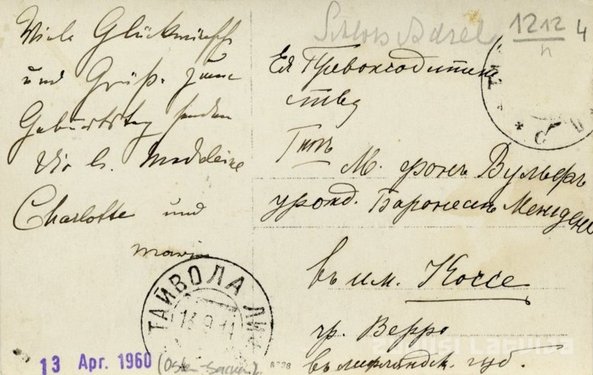 Viele Glückwünsche
und Grüße zum
Geburtstag senden
Dir h. Madeleine
Charlotte und
Marie
Schloss
1212 4
n
Ея Превосходитель
ству
Г-жѣ
М. фонъ Вульфъ
урожд. Баронессѣ Менгденъ
въ им. Коссе
гр. Верро
въ лифляндск. губ.
ТАЙВОЛА
13.9.11
13 Apr. 1960
(Osten-Sacken